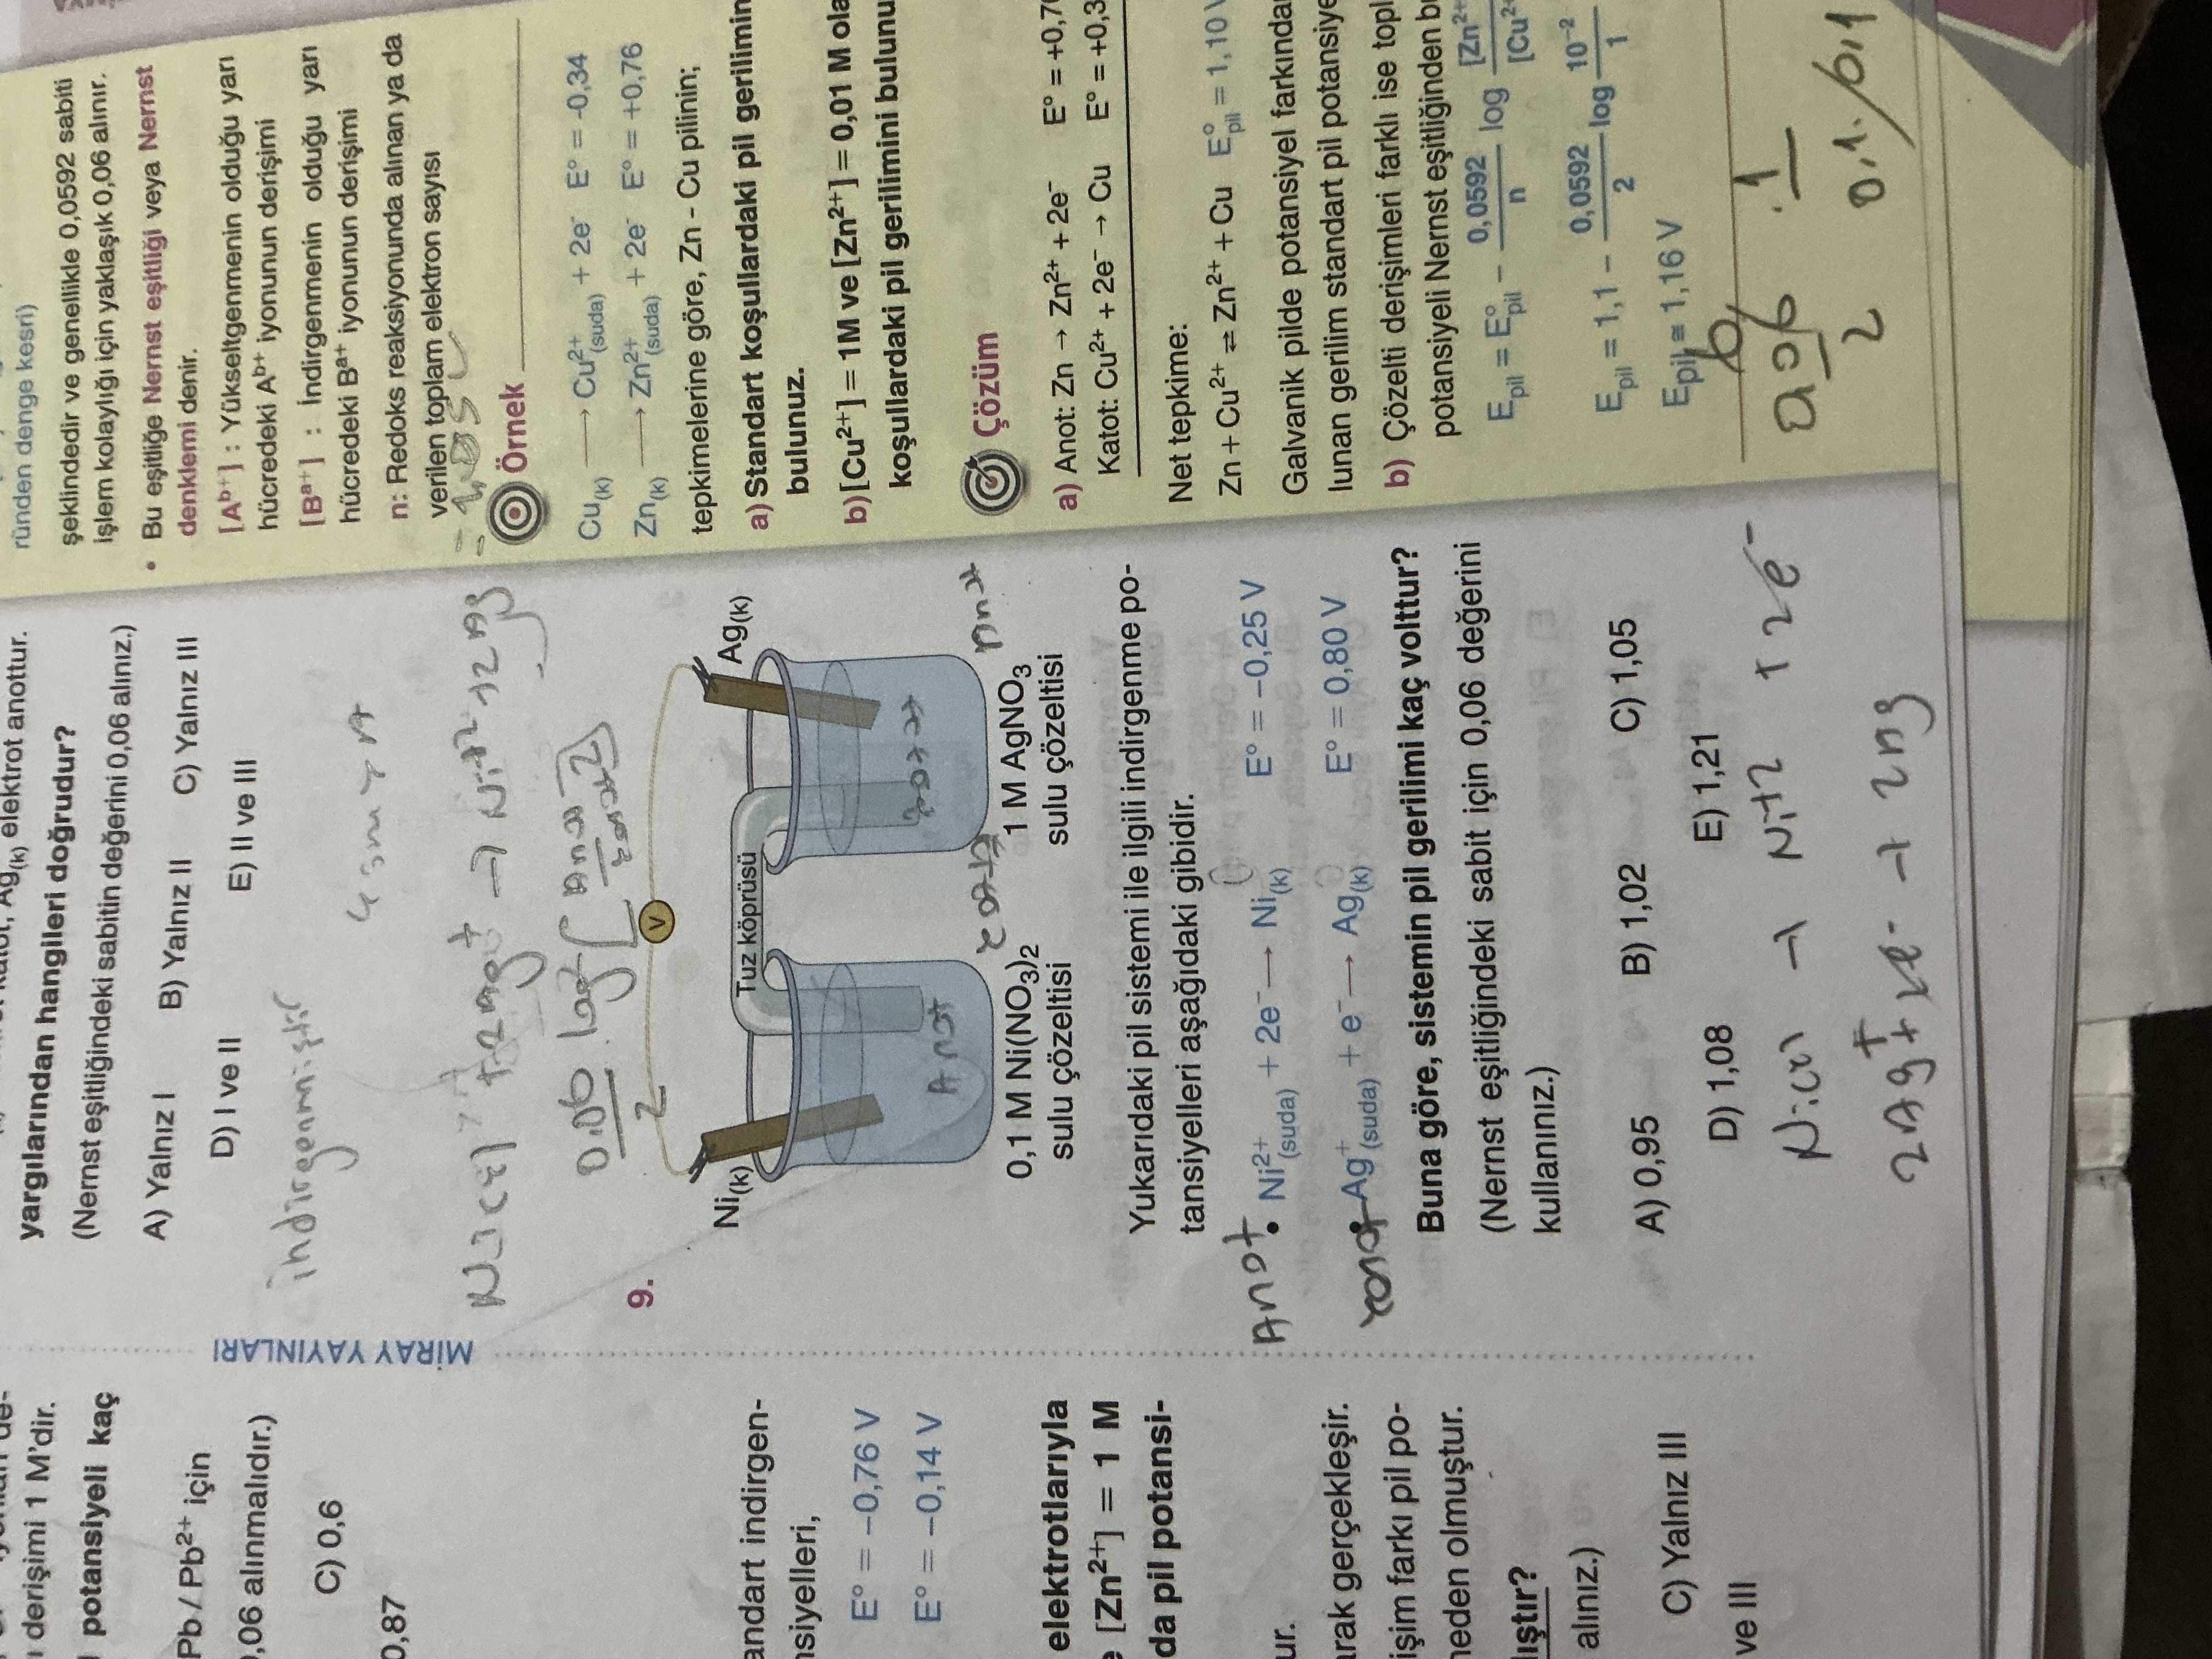 derişimi 1 M'dir.
potansiyeli kaç
Pb / Pb²⁺ için
,06 alınmalıdır.)
C) 0,6
0,87
andart indirgen-
nsiyelleri,
E° = −0,76 V
E° = −0,14 V
elektrotlarıyla
[Zn²⁺] = 1 M
da pil potansi-
ur.
arak gerçekleşir.
işim farkı pil po-
neden olmuştur.
ıştır?
alınız.)
C) Yalnız III
ve III
MİRAY YAYINLARI
Ag(k) elektrot anottur.
yargılarından hangileri doğrudur?
(Nernst eşitliğindeki sabitin değerini 0,06 alınız.)
A) Yalnız I B) Yalnız II C) Yalnız III
D) I ve II E) II ve III
indirgenmiştir
0.06 log
2
9.
V
Ni(k) Tuz köprüsü Ag(k)
Anot
0,1 M Ni(NO₃)₂ 1 M AgNO₃
sulu çözeltisi sulu çözeltisi
Yukarıdaki pil sistemi ile ilgili indirgenme po-
tansiyelleri aşağıdaki gibidir.
Anot • Ni²⁺(suda) + 2e⁻ → Ni(k) E° = −0,25 V
• Ag⁺(suda) + e⁻ → Ag(k) E° = 0,80 V
Buna göre, sistemin pil gerilimi kaç volttur?
(Nernst eşitliğindeki sabit için 0,06 değerini
kullanınız.)
A) 0,95 B) 1,02 C) 1,05
D) 1,08 E) 1,21
→ Ni+2 + 2e-
ründen denge kesri)
şeklindedir ve genellikle 0,0592 sabiti
işlem kolaylığı için yaklaşık 0,06 alınır.
• Bu eşitliğe Nernst eşitliği veya Nernst
denklemi denir.
[Aᵇ⁺] : Yükseltgenmenin olduğu yarı
hücredeki Aᵇ⁺ iyonunun derişimi
[Bᵃ⁺] : İndirgenmenin olduğu yarı
hücredeki Bᵃ⁺ iyonunun derişimi
n: Redoks reaksiyonunda alınan ya da
verilen toplam elektron sayısı
Örnek
Cu(k) → Cu²⁺(suda) + 2e⁻ E° = -0,34
Zn(k) → Zn²⁺(suda) + 2e⁻ E° = +0,76
tepkimelerine göre, Zn - Cu pilinin;
a) Standart koşullardaki pil gerilimin
bulunuz.
b) [Cu²⁺] = 1M ve [Zn²⁺] = 0,01 M ola
koşullardaki pil gerilimini bulunu
Çözüm
a) Anot: Zn → Zn²⁺ + 2e⁻ E° = +0,7
Katot: Cu²⁺ + 2e⁻ → Cu E° = +0,3
Net tepkime:
Zn + Cu²⁺ ⇌ Zn²⁺ + Cu E°pil = 1,10
Galvanik pilde potansiyel farkından
lunan gerilim standart pil potansiye
b) Çözelti derişimleri farklı ise topl
potansiyeli Nernst eşitliğinden bu
Epil = E°pil − 0,0592/n log [Zn²⁺]/[Cu²⁺
Epil = 1,1 − 0,0592/2 log 10⁻²/1
Epil ≅ 1,16 V